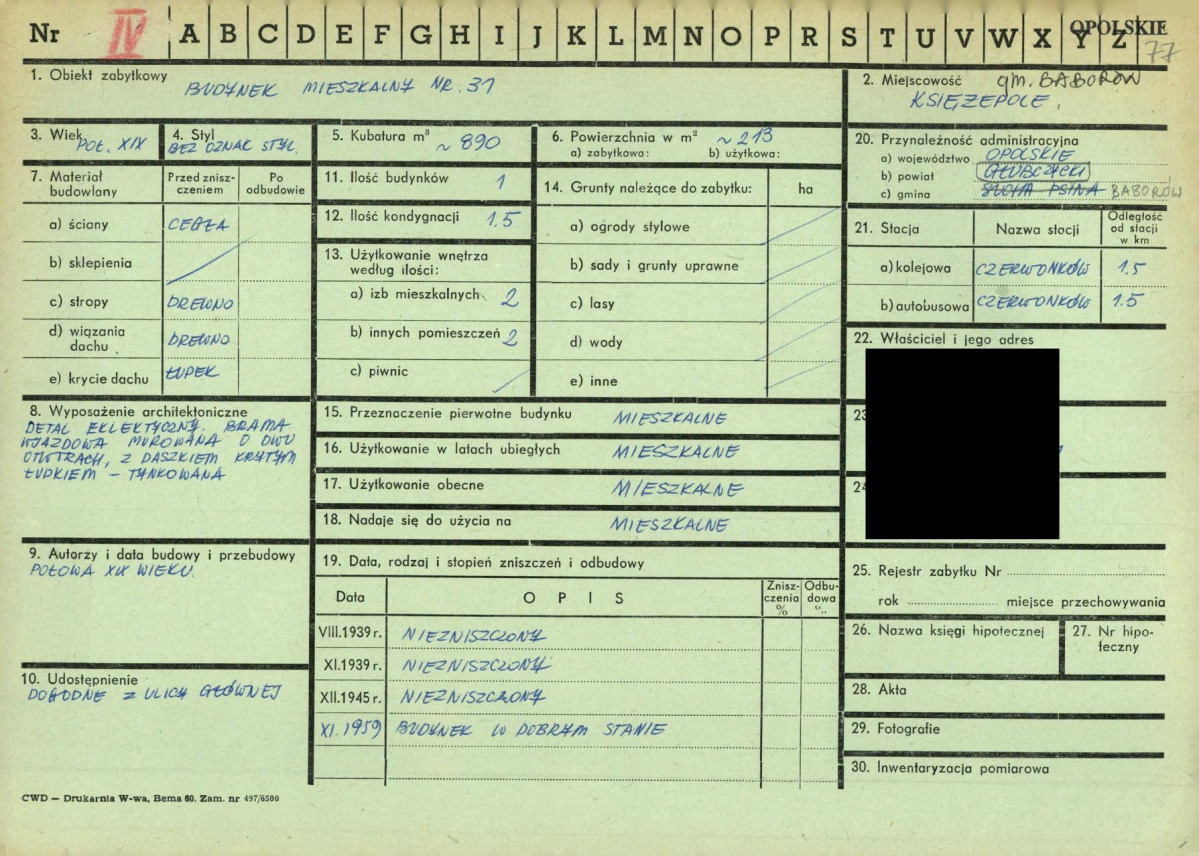 Nr IV A B C D E F G H I J K L M N O P R S T U V W X Y Z OPOLSKIE
77
1. Obiekt zabytkowy
BUDYNEK MIESZKALNY NR. 31
2. Miejscowość gm. BABORÓW
KSIĘŻEPOLE,
3. Wiek
POŁ. XIX
4. Styl
BEZ OZNAK STYL.
5. Kubatura m³
~ 890
6. Powierzchnia w m² ~ 213
a) zabytkowa: b) użytkowa:
7. Materiał budowlany
Przed znisz-
czeniem
Po
odbudowie
a) ściany CEGŁA
b) sklepienia
c) stropy DREWNO
d) wiązania
dachu DREWNO
e) krycie dachu ŁUPEK
8. Wyposażenie architektoniczne
DETAL EKLEKTYCZNY. BRAMA
WJAZDOWA MUROWANA O DWU
OTWORACH, Z DASZKIEM KRYTYM
ŁUPKIEM – TYNKOWANA
9. Autorzy i data budowy i przebudowy
POŁOWA XIX WIEKU.
10. Udostępnienie
DOGODNE Z ULICY GŁÓWNEJ
11. Ilość budynków 1
12. Ilość kondygnacji 1.5
13. Użytkowanie wnętrza
według ilości:
a) izb mieszkalnych 2
b) innych pomieszczeń 2
c) piwnic
14. Grunty należące do zabytku: ha
a) ogrody stylowe
b) sady i grunty uprawne
c) lasy
d) wody
e) inne
15. Przeznaczenie pierwotne budynku MIESZKALNE
16. Użytkowanie w latach ubiegłych MIESZKALNE
17. Użytkowanie obecne MIESZKALNE
18. Nadaje się do użycia na MIESZKALNE
19. Data, rodzaj i stopień zniszczeń i odbudowy
Data
O P I S
Znisz-
czenia
%
Odbu-
dowa
%
VIII.1939 r. NIEZNISZCZONY
XI.1939 r. NIEZNISZCZONY
XII.1945 r. NIEZNISZCZONY
XI.1959 BUDYNEK W DOBRYM STANIE
20. Przynależność administracyjna
a) województwo OPOLSKIE
b) powiat GŁUBCZYCKI
c) gmina SUCHA PSINA BABORÓW
21. Stacja
Nazwa stacji
Odległość
od stacji
w km
a) kolejowa CZERWONKÓW 1.5
b) autobusowa CZERWONKÓW 1.5
22. Właściciel i jego adres
23
24
25. Rejestr zabytku Nr
rok miejsce przechowywania
26. Nazwa księgi hipotecznej
27. Nr hipo-
teczny
28. Akta
29. Fotografie
30. Inwentaryzacja pomiarowa
CWD — Drukarnia W-wa, Bema 60. Zam. nr 497/6500